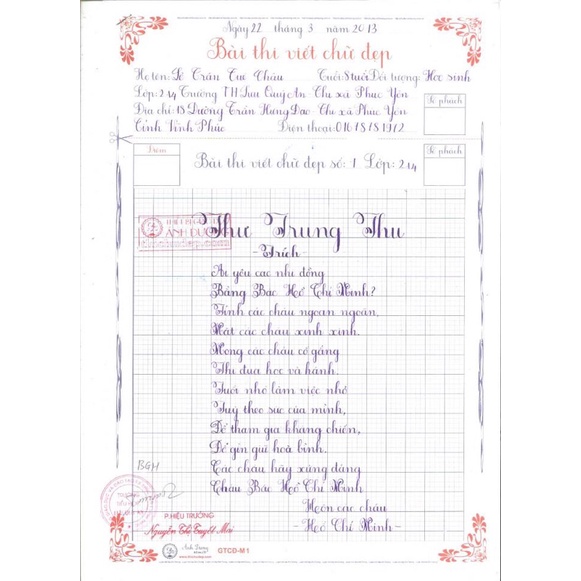 Ngày 22 tháng 3 năm 2013
Bài thi viết chữ đẹp
Họ tên: Lê Trần Tuệ Châu Tuổi: 8 tuổi Đối tượng: Học sinh
Lớp: 2A4 Trường TH Lưu Quý An Thị xã Phúc Yên
Địa chỉ: 15 Đường Trần Hưng Đạo Thị xã Phúc Yên
Tỉnh Vĩnh Phúc Điện thoại: 01678781972
Số phách
Điểm
Bài thi viết chữ đẹp số: 1 Lớp: 2A4
Số phách
ÁNH DƯƠNG
Thư Trung Thu
-Trích-
Ai yêu các nhi đồng
Bằng Bác Hồ Chí Minh?
Tính các cháu ngoan ngoãn,
Mặt các cháu xinh xinh.
Mong các cháu cố gắng
Thi đua học và hành.
Tuổi nhỏ làm việc nhỏ
Tuỳ theo sức của mình,
Để tham gia kháng chiến,
Để gìn giữ hoà bình.
Các cháu hãy xứng đáng
Cháu Bác Hồ Chí Minh
Hôn các cháu
-Hồ Chí Minh-
BGH
P.HIỆU TRƯỞNG
Nguyễn Thị Tuyết Mai
Ánh Dương
GTCD-M1